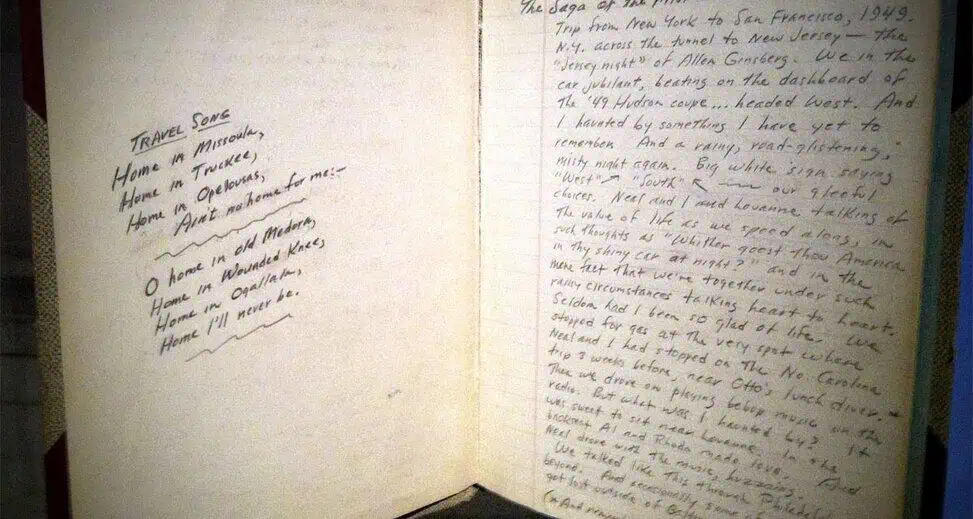 TRAVEL SONG
Home in Missoula,
Home in Truckee,
Home in Opelousas,
Ain't no home for me:—
O home in old Medora,
Home in Wounded Knee,
Home in Ogallala,
Home I'll never be.
The Saga of the
Trip from New York to San Francisco, 1949.
N.Y. across the tunnel to New Jersey — the
"Jersey night" of Allen Ginsberg. We in the
car jubilant, beating on the dashboard of
the '49 Hudson coupe... headed West. And
I haunted by something I have yet to
remember. And a rainy, road-glistening,
misty night again. Big white sign saying
"West" → "South" ← — our gleeful
choices. Neal and I and Louanne talking of
the value of life as we speed along, in
such thoughts as "Whither goest thou America
in thy shiny car at night?" and in the
mere fact that we're together under such
rainy circumstances talking heart to heart.
Seldom had I been so glad of life. We
stopped for gas at the very spot where
Neal and I had stopped on the No. Carolina
trip 3 weeks before, near Otto's lunch diner.
Then we drove on playing bebop music on the
radio. But what was I haunted by? It
was sweet to sit near Louanne. In the
backseat Al and Rhoda made love. And
Neal drove with the music, huzzaing.
We talked like this through Philadel
beyond. And occasionally some of
got lost outside of
(And